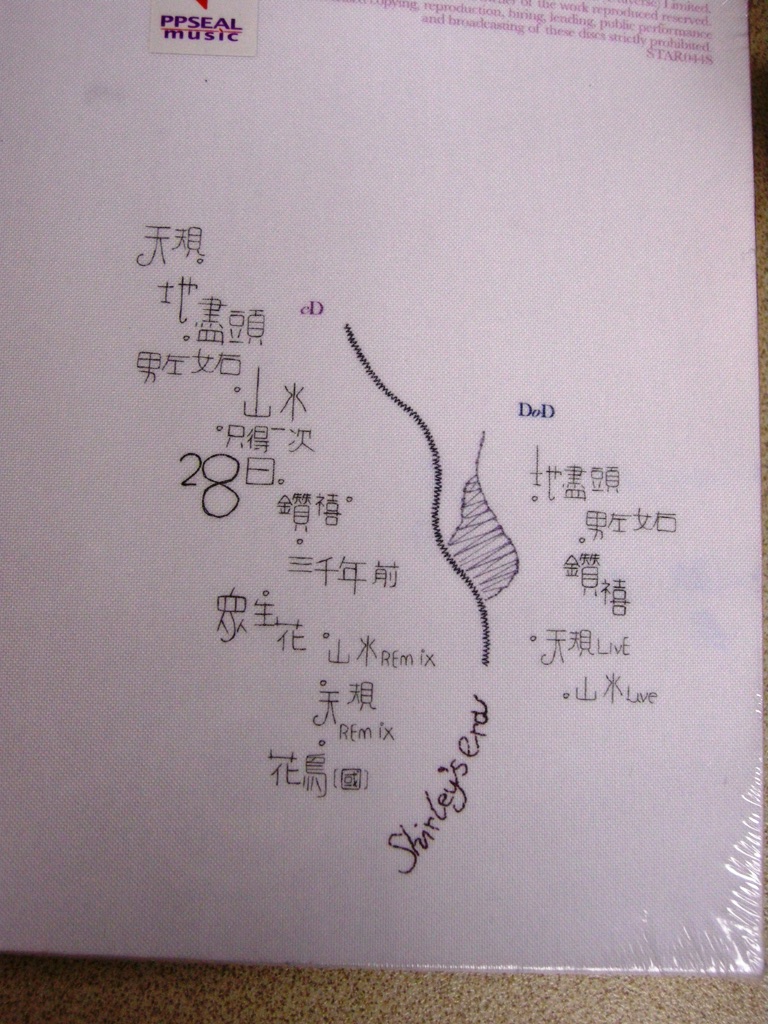 PPSEAL
music
Limited.
of the work reproduced reserved.
copying, reproduction, hiring, lending, public performance
and broadcasting of these discs strictly prohibited.
STAR044S
cD
天視
地盡頭
男左女右
山水
只得一次
28日
鑽禧
三千年前
眾生花
山水REmix
天視
REmix
花鳥(國)
DvD
地盡頭
男左女右
鑽禧
天視LIVE
山水Live
Shirley's era